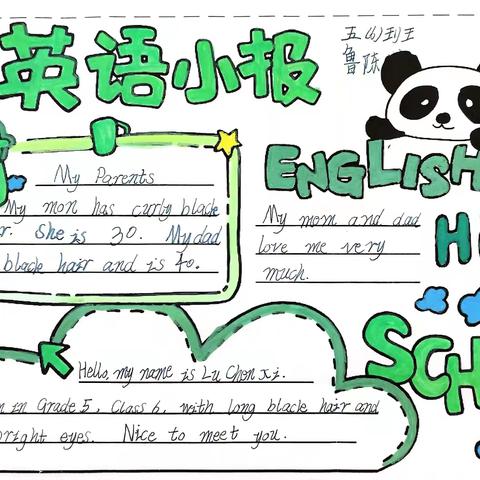 英语小报
鲁陈
My Parents
My mon has curly black
She is 30. My dad
black hair and is 40.
ENGLISH
My mom and dad
love me very
much.
Hello, my name is Lu Chen xi.
in Grade 5, Class 6, with long black hair and
bright eyes. Nice to meet you.